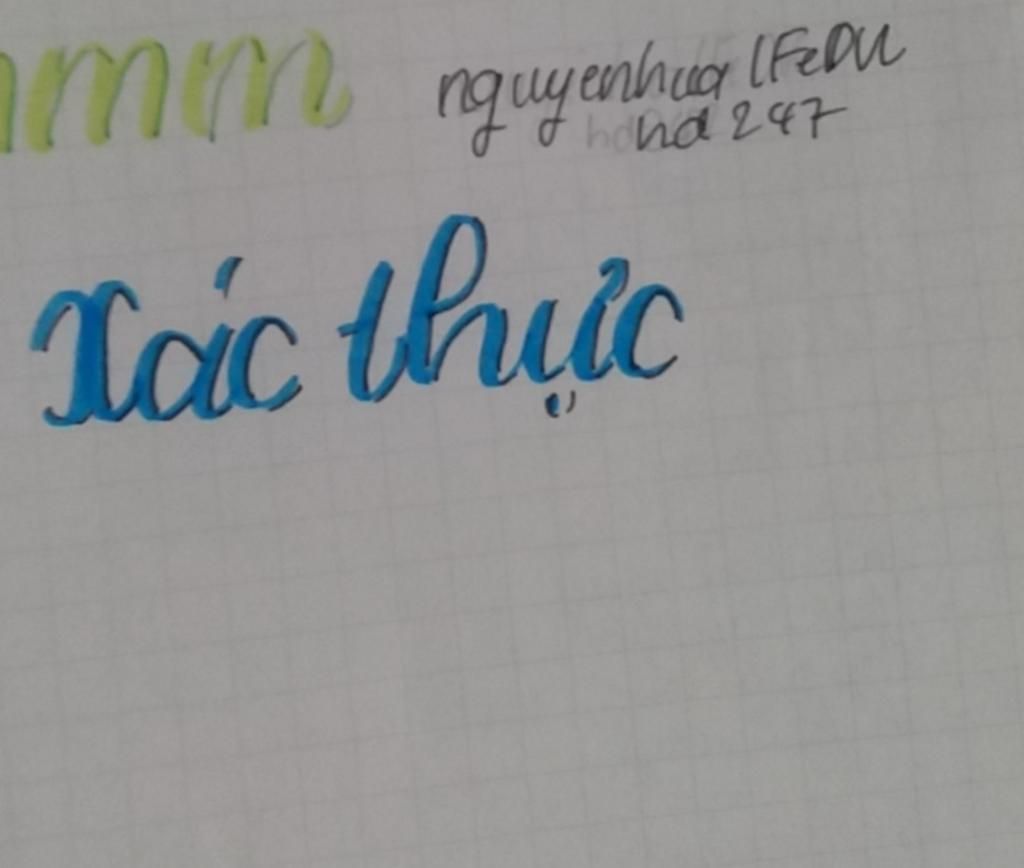 mm nguyenhua IFEDU
hd 247
Xác thực